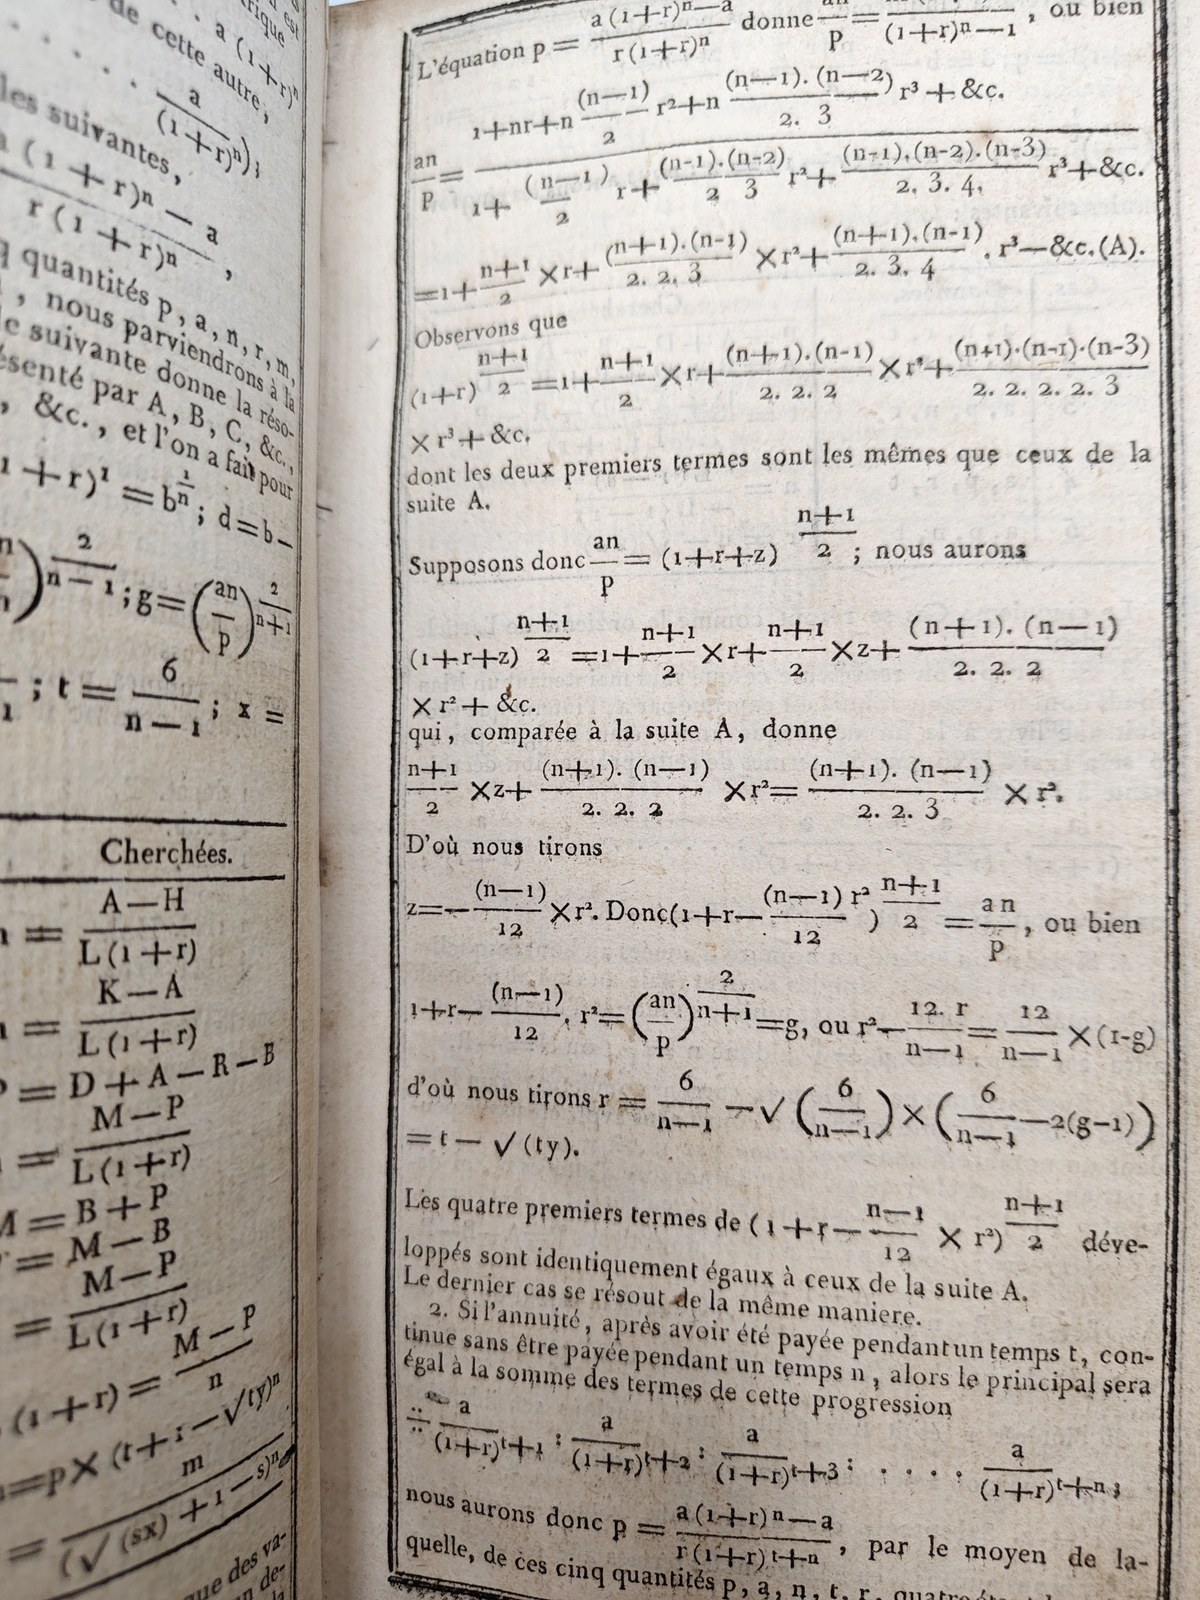 de cette autre,
a (1+r)ⁿ
a
(1+r)ⁿ);
les suivantes,
(1+r)ⁿ — a
r(1+r)ⁿ ,
quantités p, a, n, r, m,
, nous parviendrons à la
suivante donne la réso-
senté par A, B, C, &c.,
, &c., et l'on a fait pour
1+r)¹ = b^(1/n); d=b—
)^(2/(n—1)); g=(an/p)^(2/(n+1))
; t = 6/(n—1); x =
Cherchées.
= (A—H)/(L(1+r))
= (K—A)/(L(1+r))
= D+A—R—B
= (M—P)/(L(1+r))
= B+P
= M—B
= (M—P)/(L(1+r))
(1+r) = (M—P)/n
=p×(t+1—√ty)ⁿ
= m/(√(sx)+1—s)ⁿ
que des va-
L'équation p = (a(1+r)ⁿ—a)/(r(1+r)ⁿ) donne an/p = /((1+r)ⁿ—1), ou bien
1+nr+n (n—1)/2 r²+n ((n—1).(n—2))/(2. 3) r³+&c.
an/p = ―――
1+ (n—1)/2 r+ ((n-1).(n-2))/(2 3) r²+ ((n-1).(n-2).(n-3))/(2. 3. 4.) r³+&c.
=1+ (n+1)/2 ×r+ ((n+1).(n-1))/(2. 2. 3) ×r²+ ((n+1).(n-1))/(2. 3. 4) . r³—&c.(A).
Observons que
(1+r)^((n+1)/2) =1+ (n+1)/2 ×r+ ((n+1).(n-1))/(2. 2. 2) ×r²+ ((n+1).(n-1).(n-3))/(2. 2. 2. 2. 3)
×r³+&c.
dont les deux premiers termes sont les mêmes que ceux de la
suite A.
Supposons donc an/p = (1+r+z)^((n+1)/2); nous aurons
(1+r+z)^((n+1)/2) =1+ (n+1)/2 ×r+ (n+1)/2 ×z+ ((n+1). (n—1))/(2. 2. 2)
×r²+ &c.
qui, comparée à la suite A, donne
(n+1)/2 ×z+ ((n+1). (n—1))/(2. 2. 2) ×r²= ((n+1). (n—1))/(2. 2. 3) ×r².
D'où nous tirons
z=— (n—1)/12 ×r². Donc(1+r— ((n—1) r²)/12 )^((n+1)/2) = an/p, ou bien
1+r— (n—1)/12 . r²=(an/p)^(2/(n+1))=g, ou r²— (12. r)/(n—1) = 12/(n—1) ×(1-g)
d'où nous tirons r = 6/(n—1) —√(6/(n—1))×(6/(n—1) —2(g—1))
= t— √(ty).
Les quatre premiers termes de (1+r— (n—1)/12 × r²)^((n+1)/2) déve-
loppés sont identiquement égaux à ceux de la suite A.
Le dernier cas se résout de la même maniere.
2. Si l'annuité, après avoir été payée pendant un temps t, con-
tinue sans être payée pendant un temps n, alors le principal sera
égal à la somme des termes de cette progression
÷ a/(1+r)^(t+1) : a/(1+r)^(t+2) : a/(1+r)^(t+3) : . . . . a/(1+r)^(t+n);
nous aurons donc p = (a(1+r)ⁿ—a)/(r(1+r)^(t+n)), par le moyen de la-
quelle, de ces cinq quantités p, a, n, t, r,